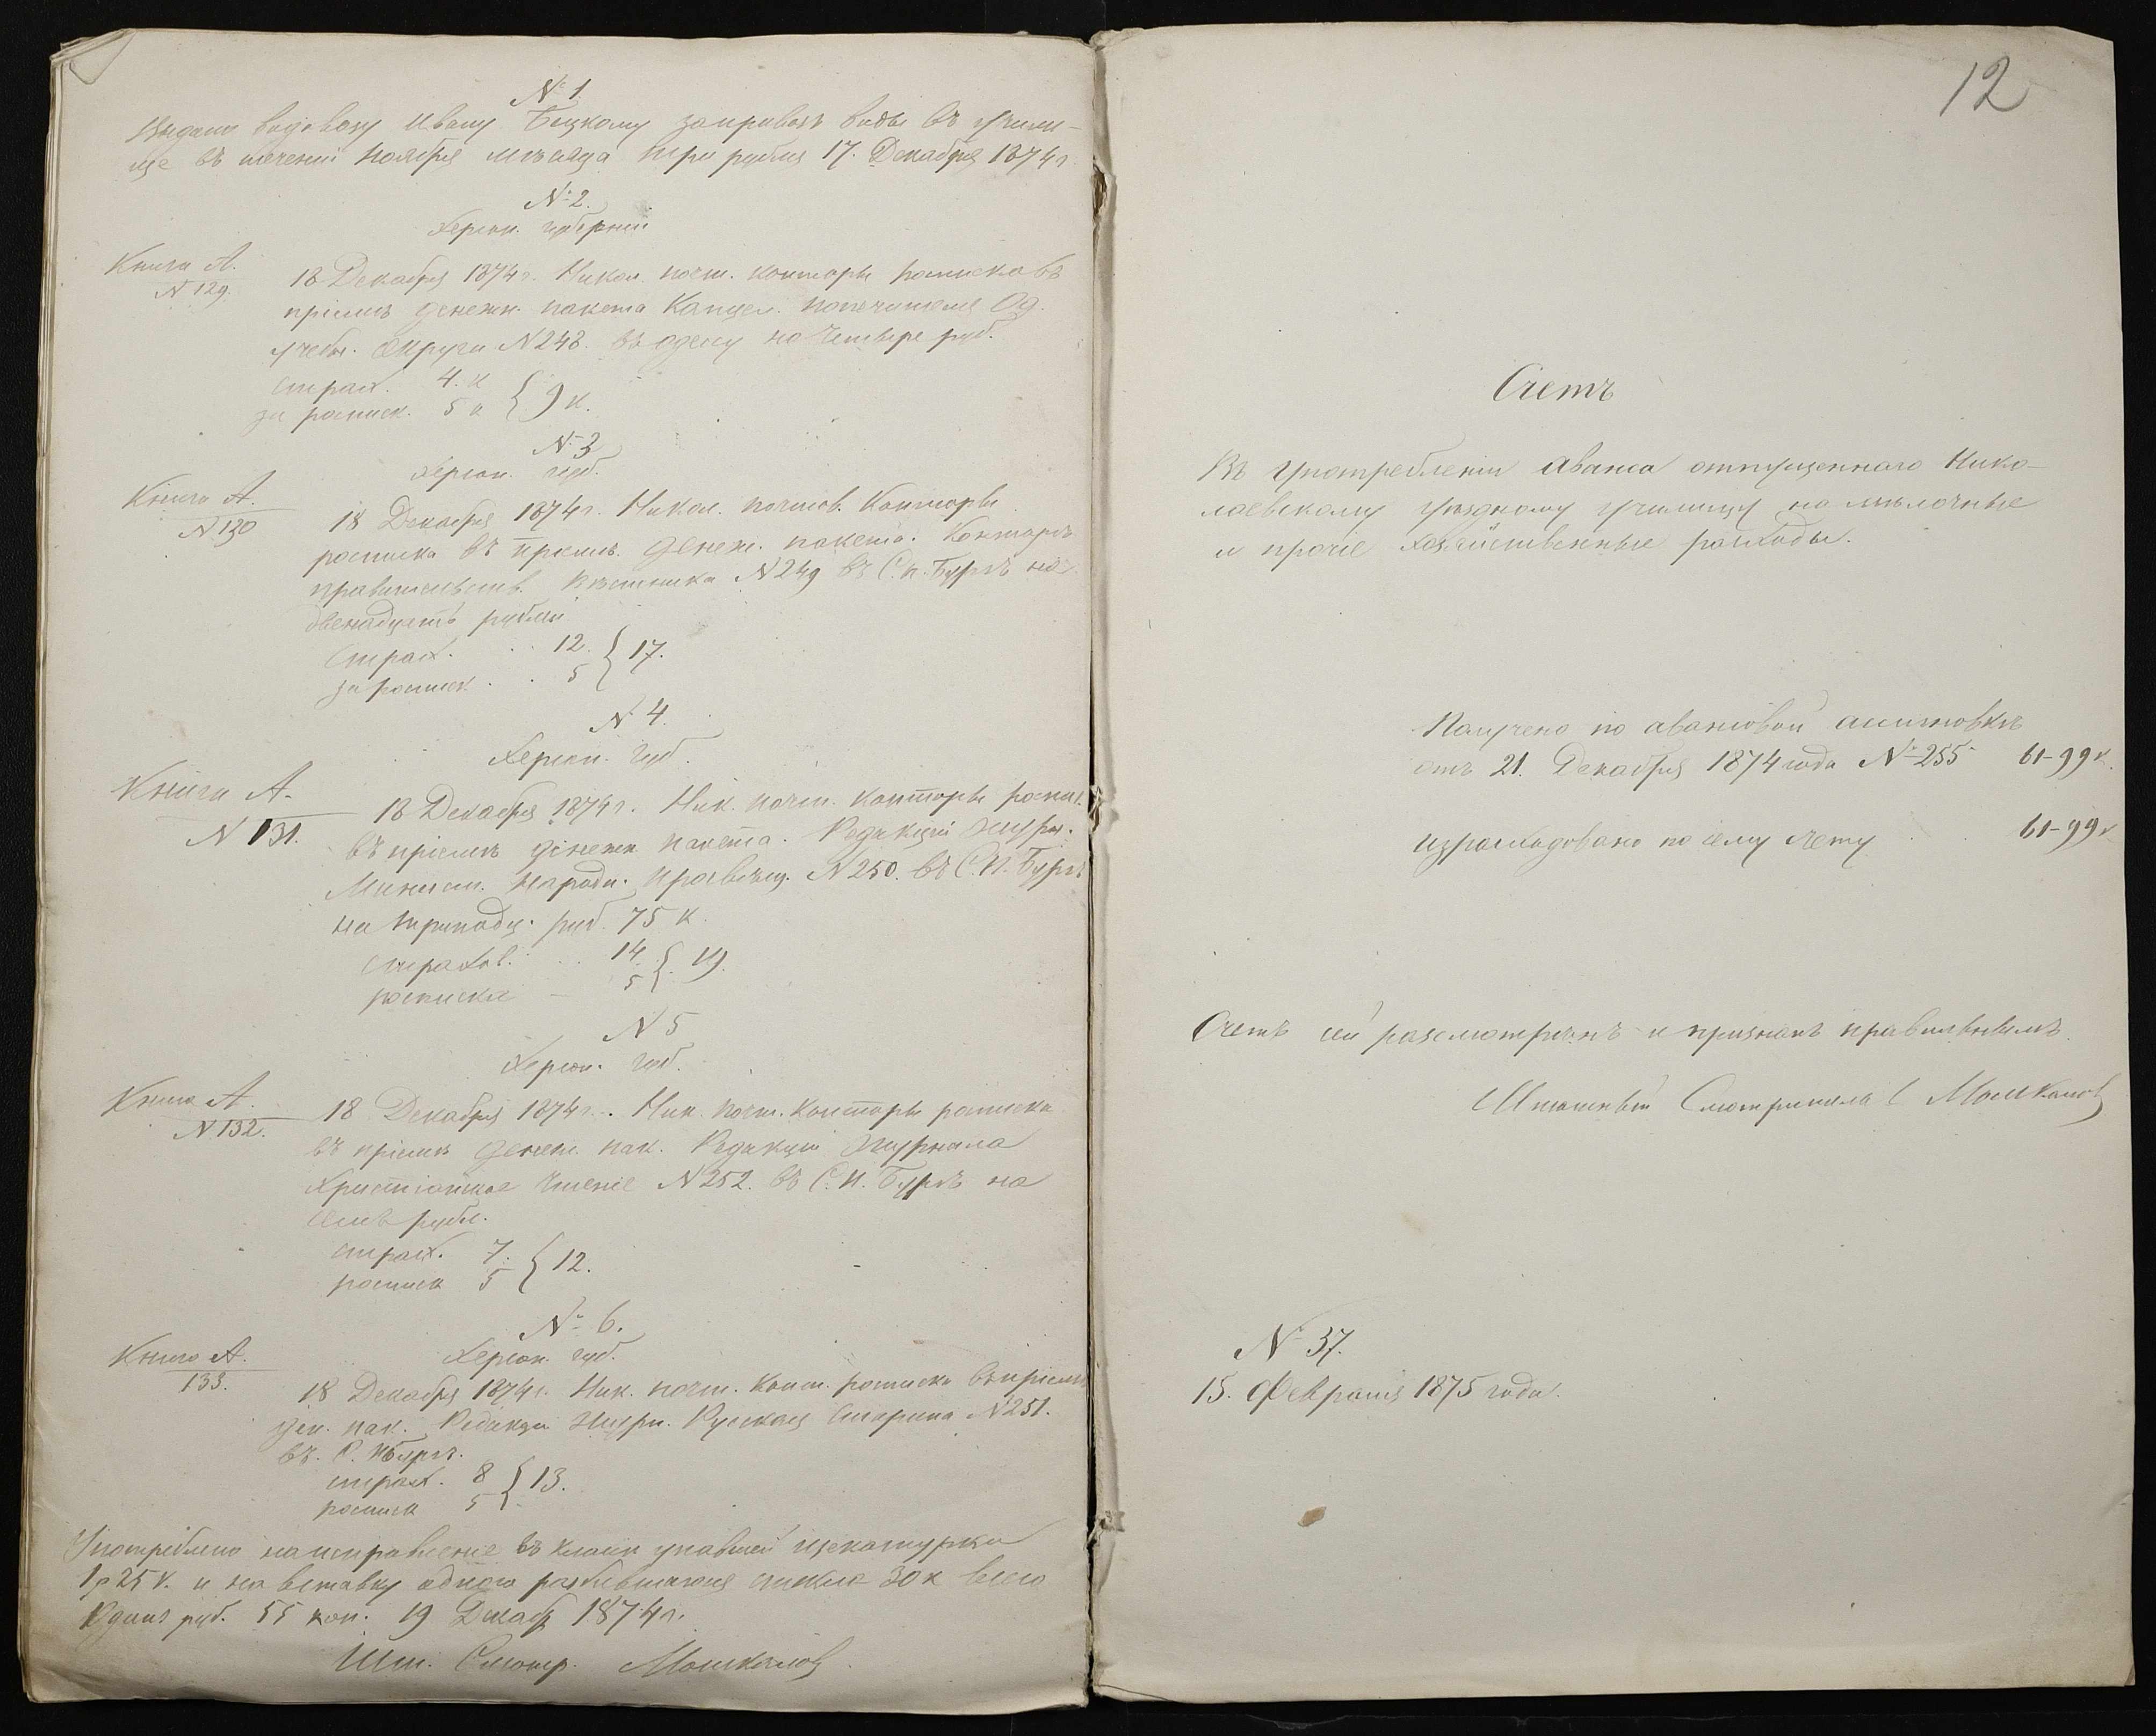 № 1.
Выдано водовозу Ивану Бецкому за привозъ воды въ учили-
ще въ теченіи Ноября мѣсяца три рубля 17. Декабря 1874 г.
№ 2.
Херсон. губерніи
Книга А.
N 129.
18 Декабря 1874 г. Никол. почт. конторы росписка въ
пріемѣ денежн. пакета Канцел. попечителя Од.
учебн. Округа N 248. въ Одессу на Четыре руб.
страх. 4. к
за росписк. 5 к } 9 к.
№ 3
Херсон. губ.
Книга А.
N 130
18 Декабря 1874 г. Никол. почтов. Конторы
росписка въ пріемѣ денеж. пакета. Конторѣ
правительств. Вѣстника N 249 въ С. П. Бургъ на
двенадцать рублей
Страх. 12.
за росписк. 5 } 17.
N 4.
Херсон. Губ.
Книга А.
N 131.
18 Декабря 1874 г. Ник. почт. конторы роспис.
въ пріемѣ денежн пакета. Редакціи Журн.
Минист. Народн. Просвѣщ. N 250. въ С. П. Бургъ
на тринадц. руб. 75 к.
страхов. 14
росписка 5 } 19.
N 5
Херсон. Губ.
Книга А.
N 132.
18 Декабря 1874 г. Ник. почт. Конторы росписка
въ пріемѣ денеж. пак. Редакціи Журнала
Христіанское Чтеніе N 252. въ С. П. Бургъ на
семь рубл.
страх. 7.
росписк 5 } 12.
№ 6.
Херсон. губ.
Книга А.
133.
18 Декабря 1874 г. Ник. почт. Конт. росписка въ пріемѣ
ден. пак. Редакціи Журн. Русская Старина N 251.
въ С. Пбургъ.
страх. 8
росписк 5 } 13.
Употреблено на исправленіе въ класѣ упавшей щекатурки
1 р 25 к. и на вставку одного разбившагося стекла 30 к всего
Одинъ руб. 55 коп. 19 Декабр 1874 г.
Шт. Смотр. Мошкалов
12
Счетъ
Въ употребленіи аванса отпущеннаго Нико-
лаевскому уѣздному училищу на мѣлочные
и прочіе хозяйственные расходы.
Получено по авансовой ассигновкѣ
отъ 21. Декабря 1874 года № 255 61-99 к.
израсходовано по сему счету 61-99 к
Счетъ сей разсмотренъ и признанъ правильнымъ.
Штатный Смотритель Мошкалов
№ 37.
15. Февраля 1875 года.